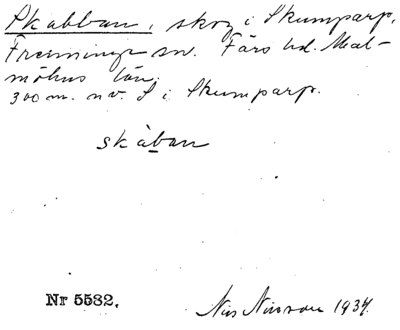 Skabban, skog i Skumparp,
Fremminge sn. Färs hd. Mal-
möhus län.
300 m. nv. S i Skumparp.
skàban
Nr 5582.
Nils Nilsson 1937.